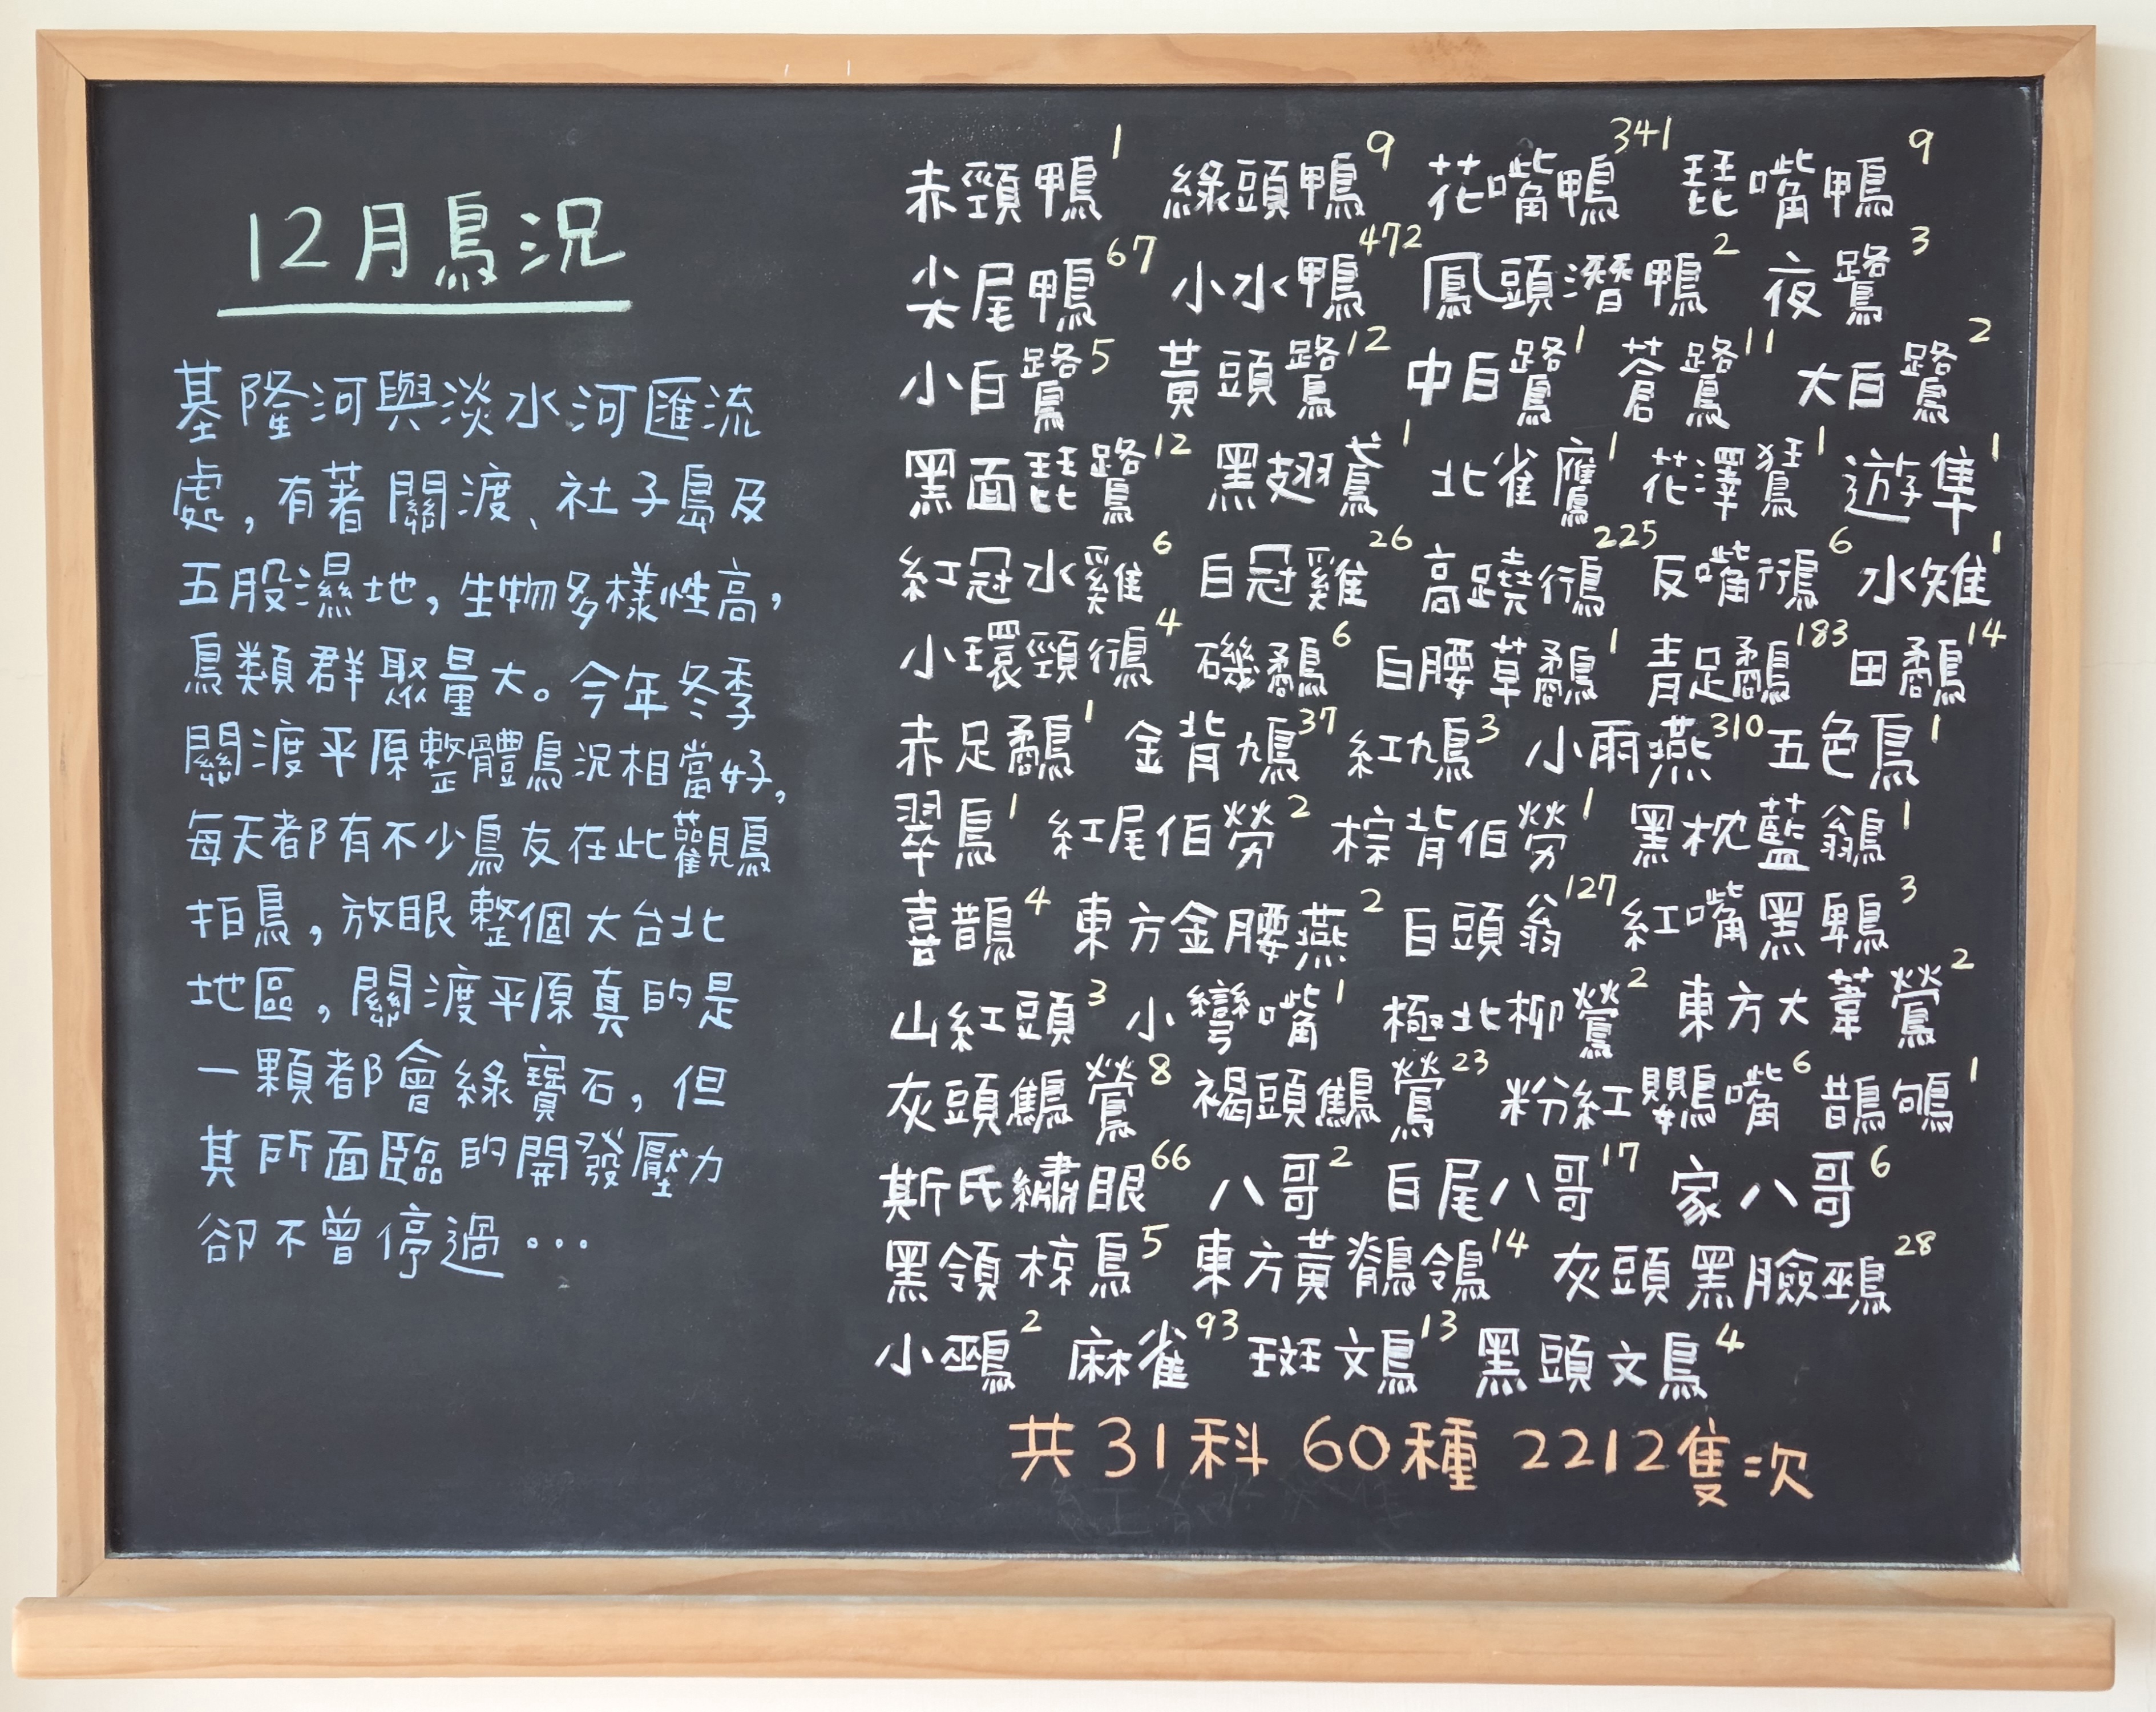 12月鳥況
基隆河與淡水河匯流
處,有著關渡、社子島及
五股濕地,生物多樣性高,
鳥類群聚量大。今年冬季
關渡平原整體鳥況相當好,
每天都有不少鳥友在此觀鳥
拍鳥,放眼整個大台北
地區,關渡平原真的是
一顆都會綠寶石,但
其所面臨的開發壓力
卻不曾停過...
赤頸鴨1 綠頭鴨9 花嘴鴨341 琵嘴鴨9
尖尾鴨67 小水鴨472 鳳頭潛鴨2 夜鷺3
小白鷺5 黃頭鷺12 中白鷺1 蒼鷺11 大白鷺2
黑面琵鷺12 黑翅鳶1 北雀鷹1 花澤鵟1 遊隼1
紅冠水雞6 白冠雞26 高蹺鴴225 反嘴鴴6 水雉1
小環頸鴴4 磯鷸6 白腰草鷸1 青足鷸183 田鷸14
赤足鷸1 金背鳩37 紅鳩3 小雨燕310 五色鳥1
翠鳥1 紅尾伯勞2 棕背伯勞1 黑枕藍鶲1
喜鵲4 東方金腰燕2 白頭翁127 紅嘴黑鵯3
山紅頭3 小彎嘴1 極北柳鶯2 東方大葦鶯2
灰頭鷦鶯8 褐頭鷦鶯23 粉紅鸚嘴6 鵲鴝1
斯氏繡眼66 八哥2 白尾八哥17 家八哥6
黑領椋鳥5 東方黃鶺鴒14 灰頭黑臉鵐28
小鵐2 麻雀93 斑文鳥13 黑頭文鳥4
共31科 60種 2212隻次